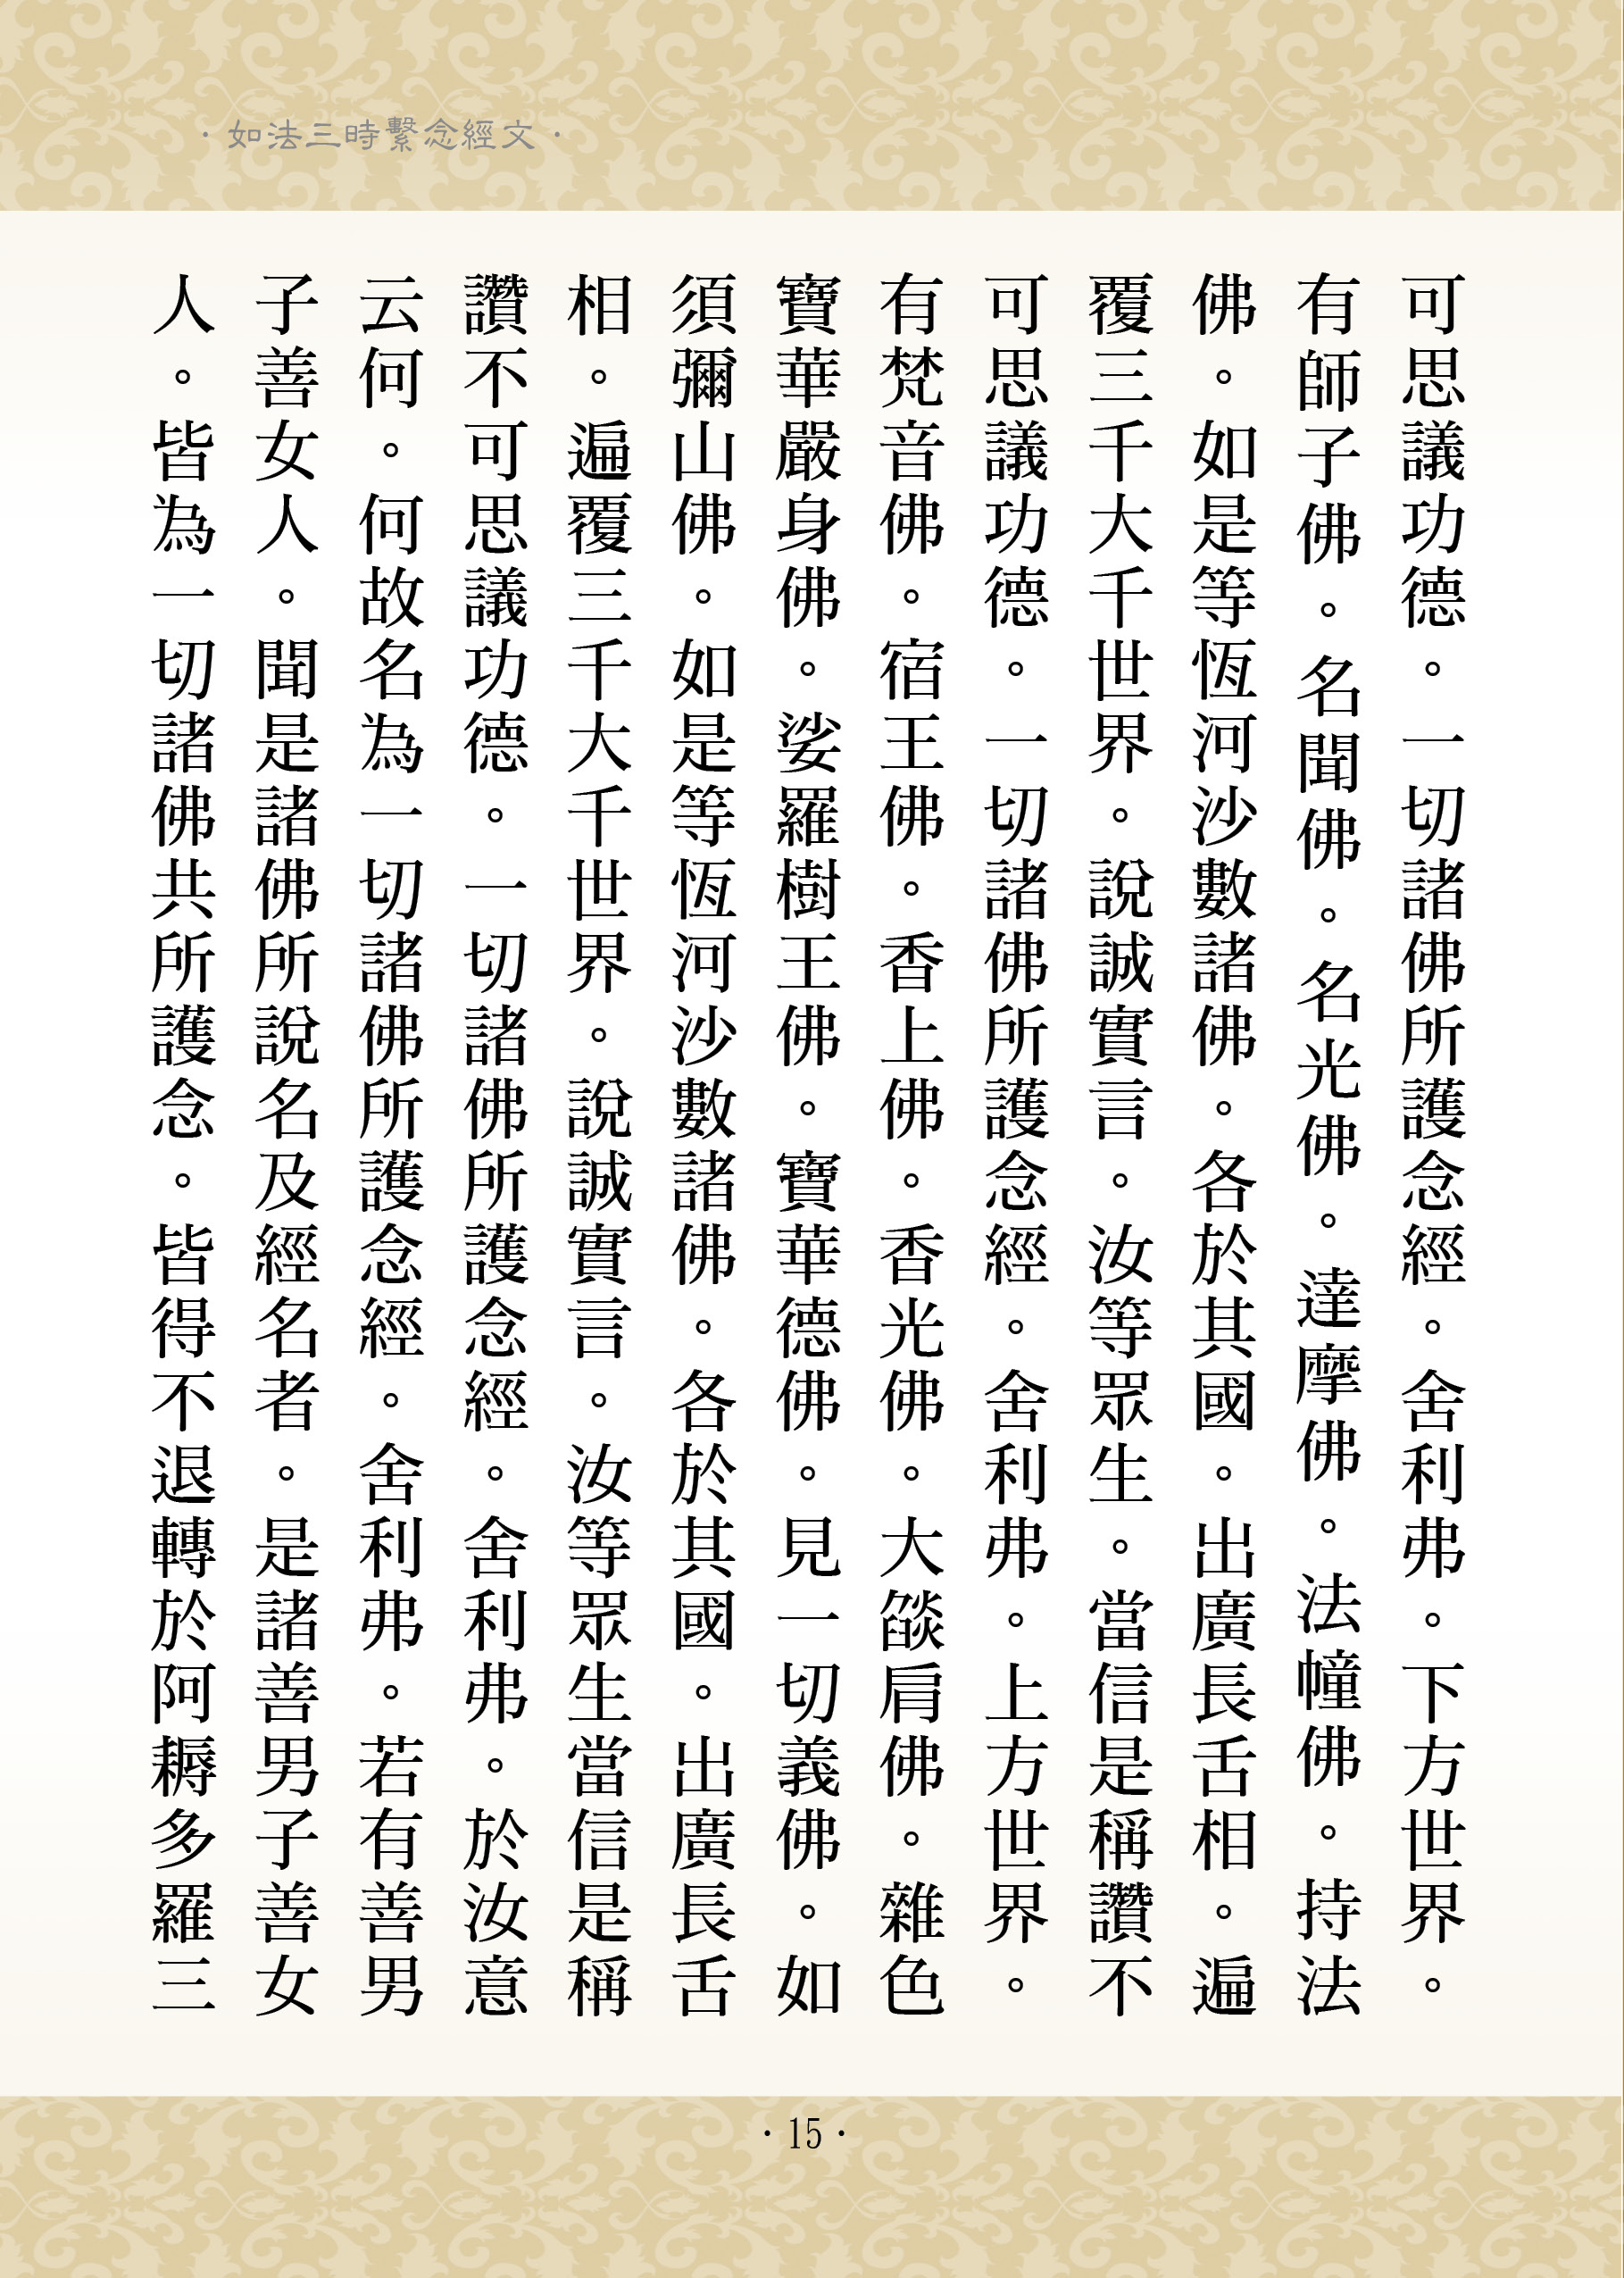 ·如法三時繫念經文·
可思議功德。一切諸佛所護念經。舍利弗。下方世界。
有師子佛。名聞佛。名光佛。達摩佛。法幢佛。持法
佛。如是等恆河沙數諸佛。各於其國。出廣長舌相。遍
覆三千大千世界。說誠實言。汝等眾生。當信是稱讚不
可思議功德。一切諸佛所護念經。舍利弗。上方世界。
有梵音佛。宿王佛。香上佛。香光佛。大燄肩佛。雜色
寶華嚴身佛。娑羅樹王佛。寶華德佛。見一切義佛。如
須彌山佛。如是等恆河沙數諸佛。各於其國。出廣長舌
相。遍覆三千大千世界。說誠實言。汝等眾生當信是稱
讚不可思議功德。一切諸佛所護念經。舍利弗。於汝意
云何。何故名為一切諸佛所護念經。舍利弗。若有善男
子善女人。聞是諸佛所說名及經名者。是諸善男子善女
人。皆為一切諸佛共所護念。皆得不退轉於阿耨多羅三
·15·